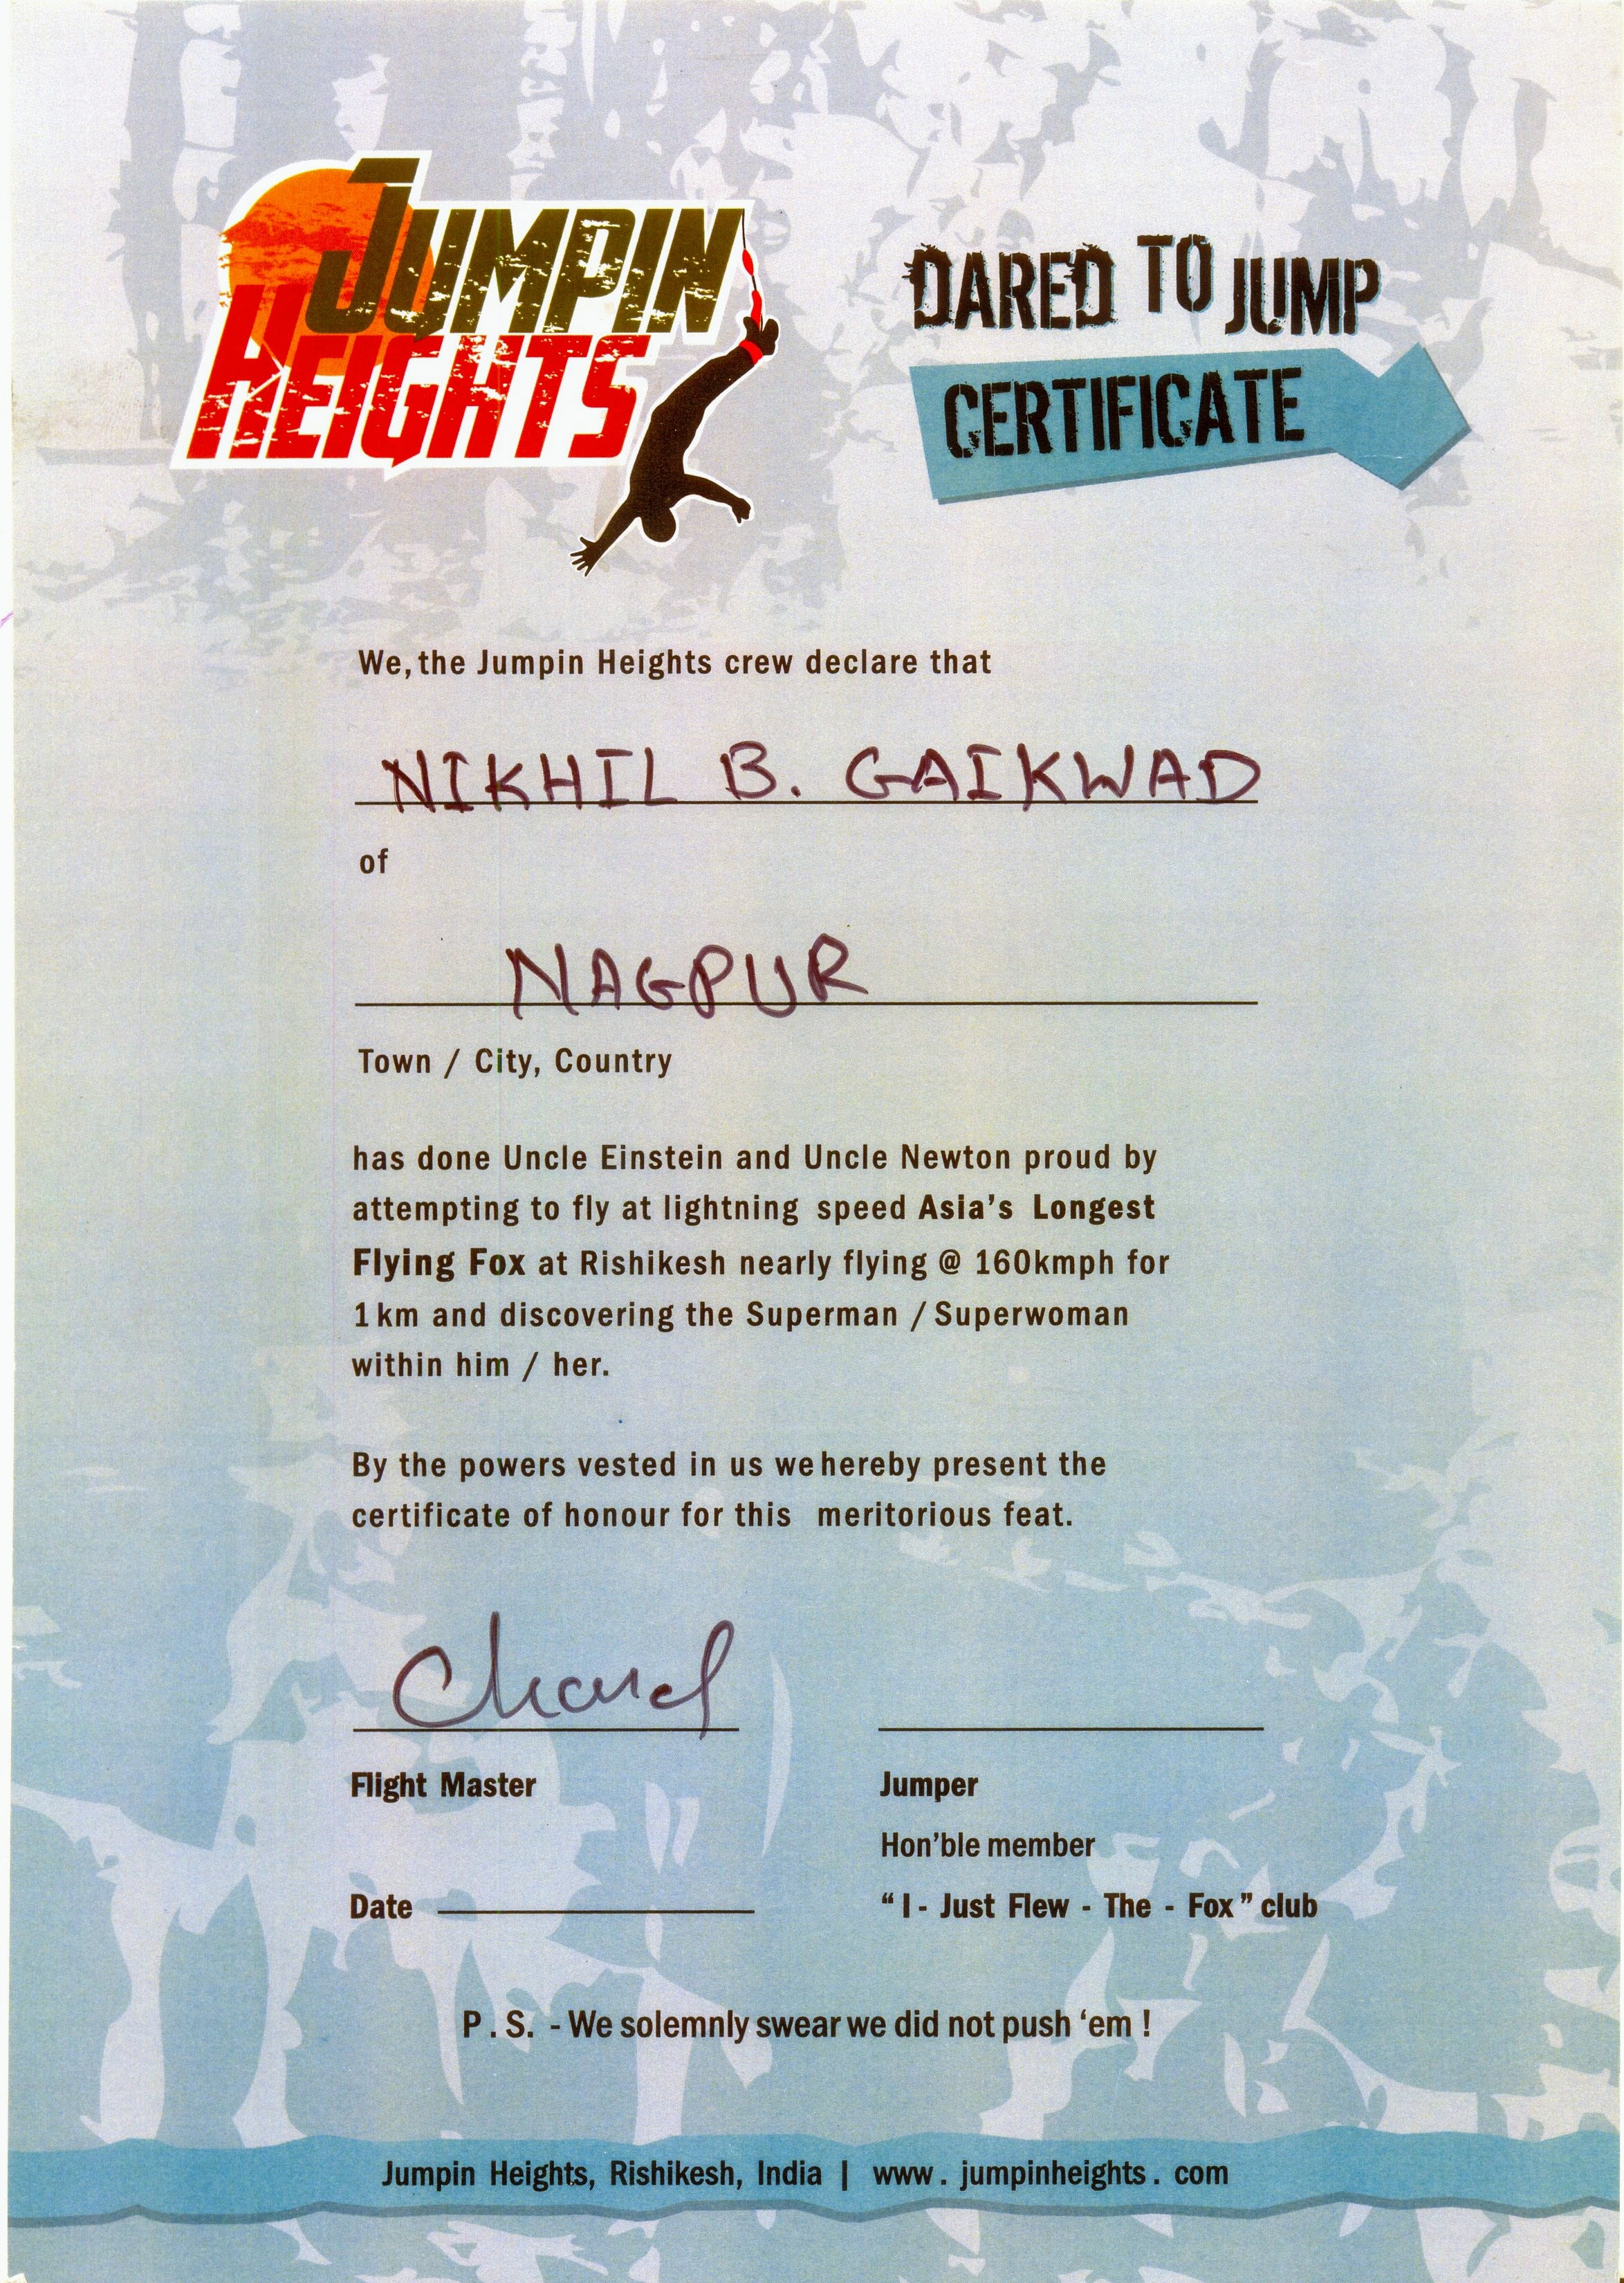 JUMPIN
HEIGHTS
DARED TO JUMP
CERTIFICATE
We, the Jumpin Heights crew declare that
NIKHIL B. GAIKWAD
of
NAGPUR
Town / City, Country
has done Uncle Einstein and Uncle Newton proud by
attempting to fly at lightning speed Asia's Longest
Flying Fox at Rishikesh nearly flying @ 160kmph for
1 km and discovering the Superman / Superwoman
within him / her.
By the powers vested in us we hereby present the
certificate of honour for this meritorious feat.
Flight Master
Jumper
Hon'ble member
Date
"I - Just Flew - The - Fox" club
P . S. - We solemnly swear we did not push 'em !
Jumpin Heights, Rishikesh, India | www . jumpinheights . com